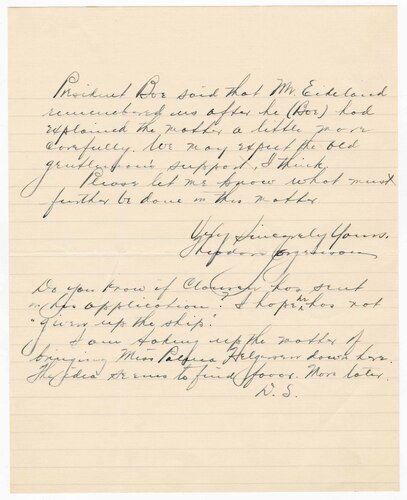 President Boe said that Mr. Eikeland
remembered us after he (Boe) had
explained the matter a little more
carefully. We may expect the old
gentleman's support, I think.
Please let me know what must
further be done in this matter.
Very Sincerely Yours,
Theodore Jorgenson
Do you know if Clausen has sent
in his application? I hope he has not
"given up the ship."
I am taking up the matter of
bringing Miss Palma down here.
The idea seems to find favor. More later.
D. S.